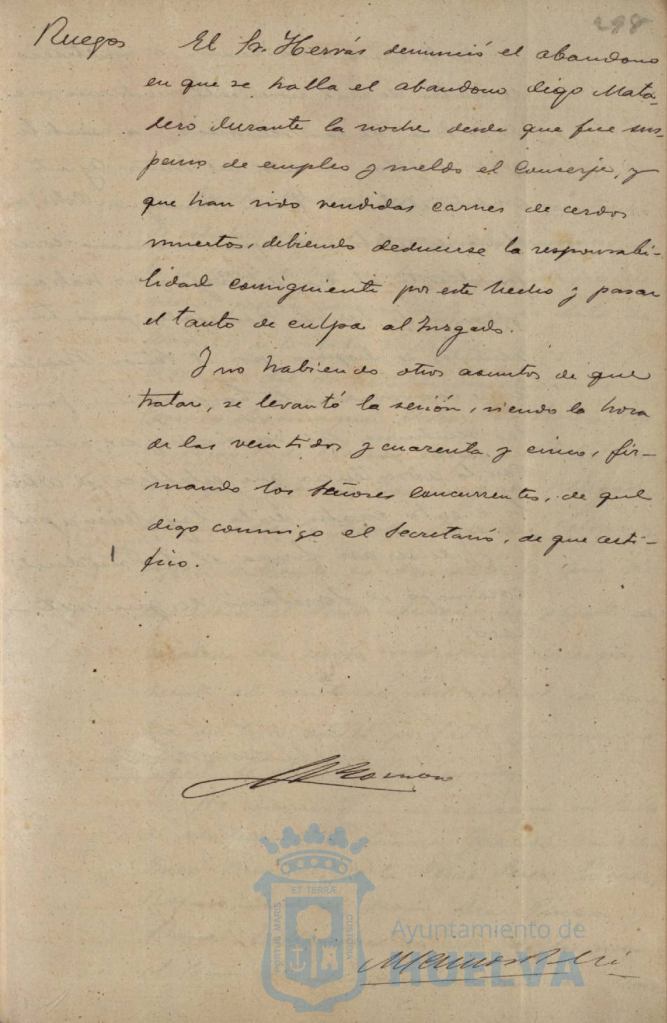 298
Ruegos
El Sr. Hervás denunció el abandono
en que se halla el abandono digo Mata-
dero durante la noche desde que fue sus-
penso de empleo y sueldo el Conserje, y
que han sido vendidas carnes de cerdos
muertos, debiendo deducirse la responsabi-
lidad consiguiente por este hecho y pasar
el tanto de culpa al Juzgado.
Y no habiendo otros asuntos de que
tratar, se levantó la sesión, siendo la hora
de las veintidos y cuarenta y cinco, fir-
mando los Señores concurrentes, de que
digo conmigo el Secretario, de que certi-
fico.
PORTUS MARIS
ET TERRÆ
CUSTODIA
Ayuntamiento de
HUELVA